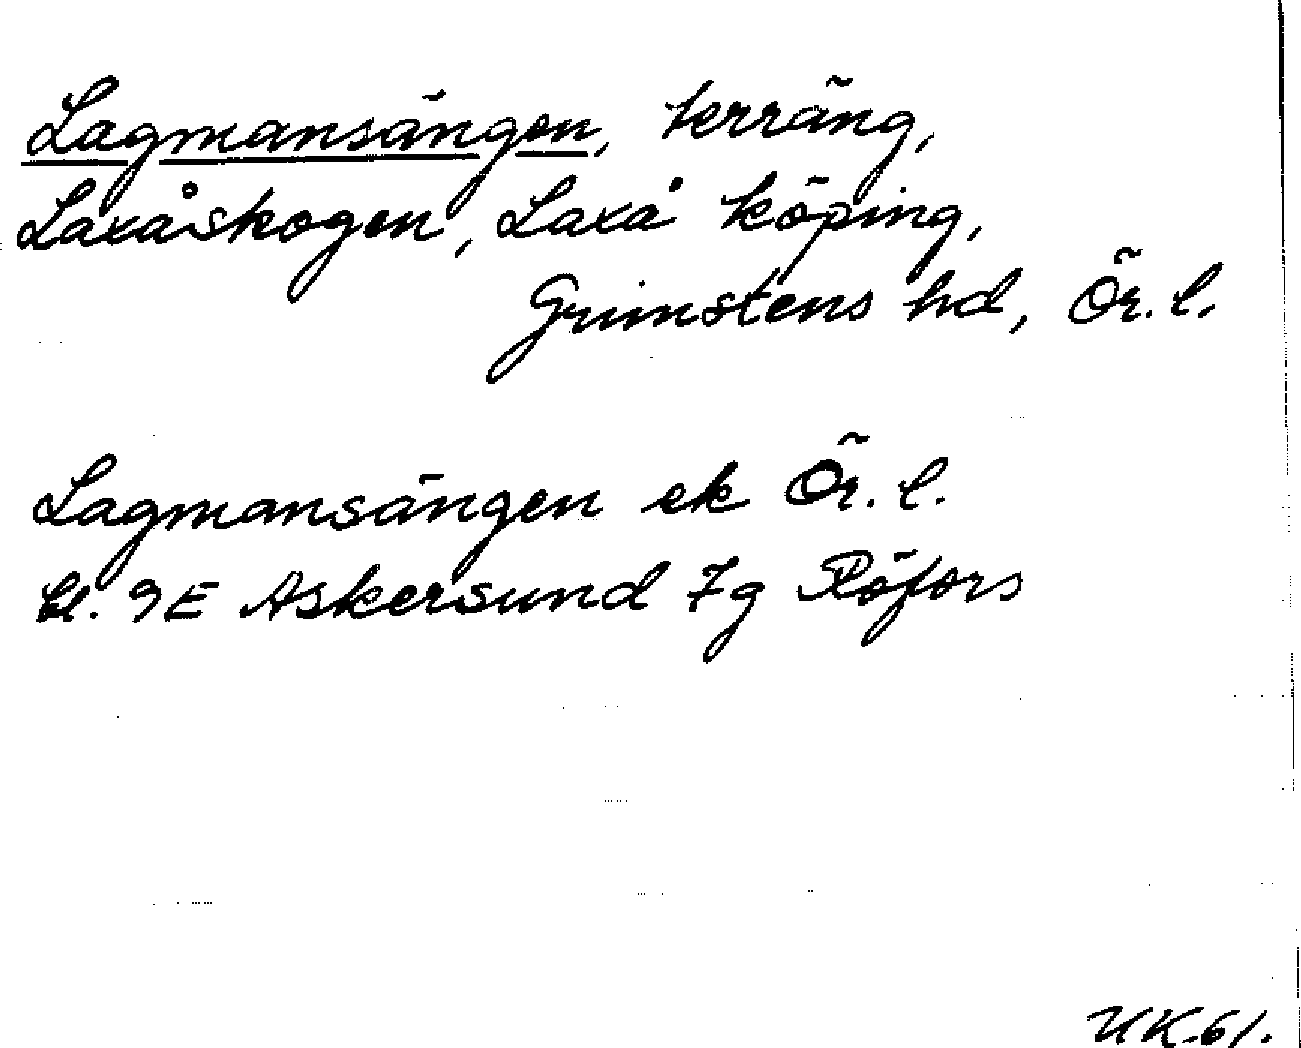 Lagmansängen, terräng,
Laxåskogen, Laxå köping,
Grimstens hd, Ör. l.
Lagmansängen ek Ör. l.
bl. 9E Askersund 7g Röfors
UK.61.